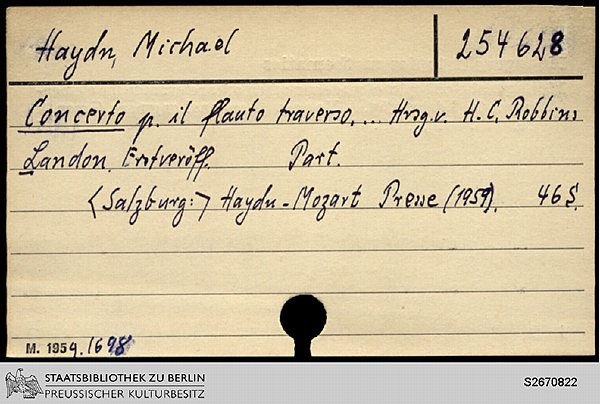 Haydn, Michael
254628
Concerto p. il flauto traverso. ... Hrsg. v. H. C. Robbins
Landon. Erstveröff. Part.
<Salzburg:> Haydn-Mozart Presse (1959). 46 S.
M. 1959. 1698
STAATSBIBLIOTHEK ZU BERLIN
PREUSSISCHER KULTURBESITZ
S2670822